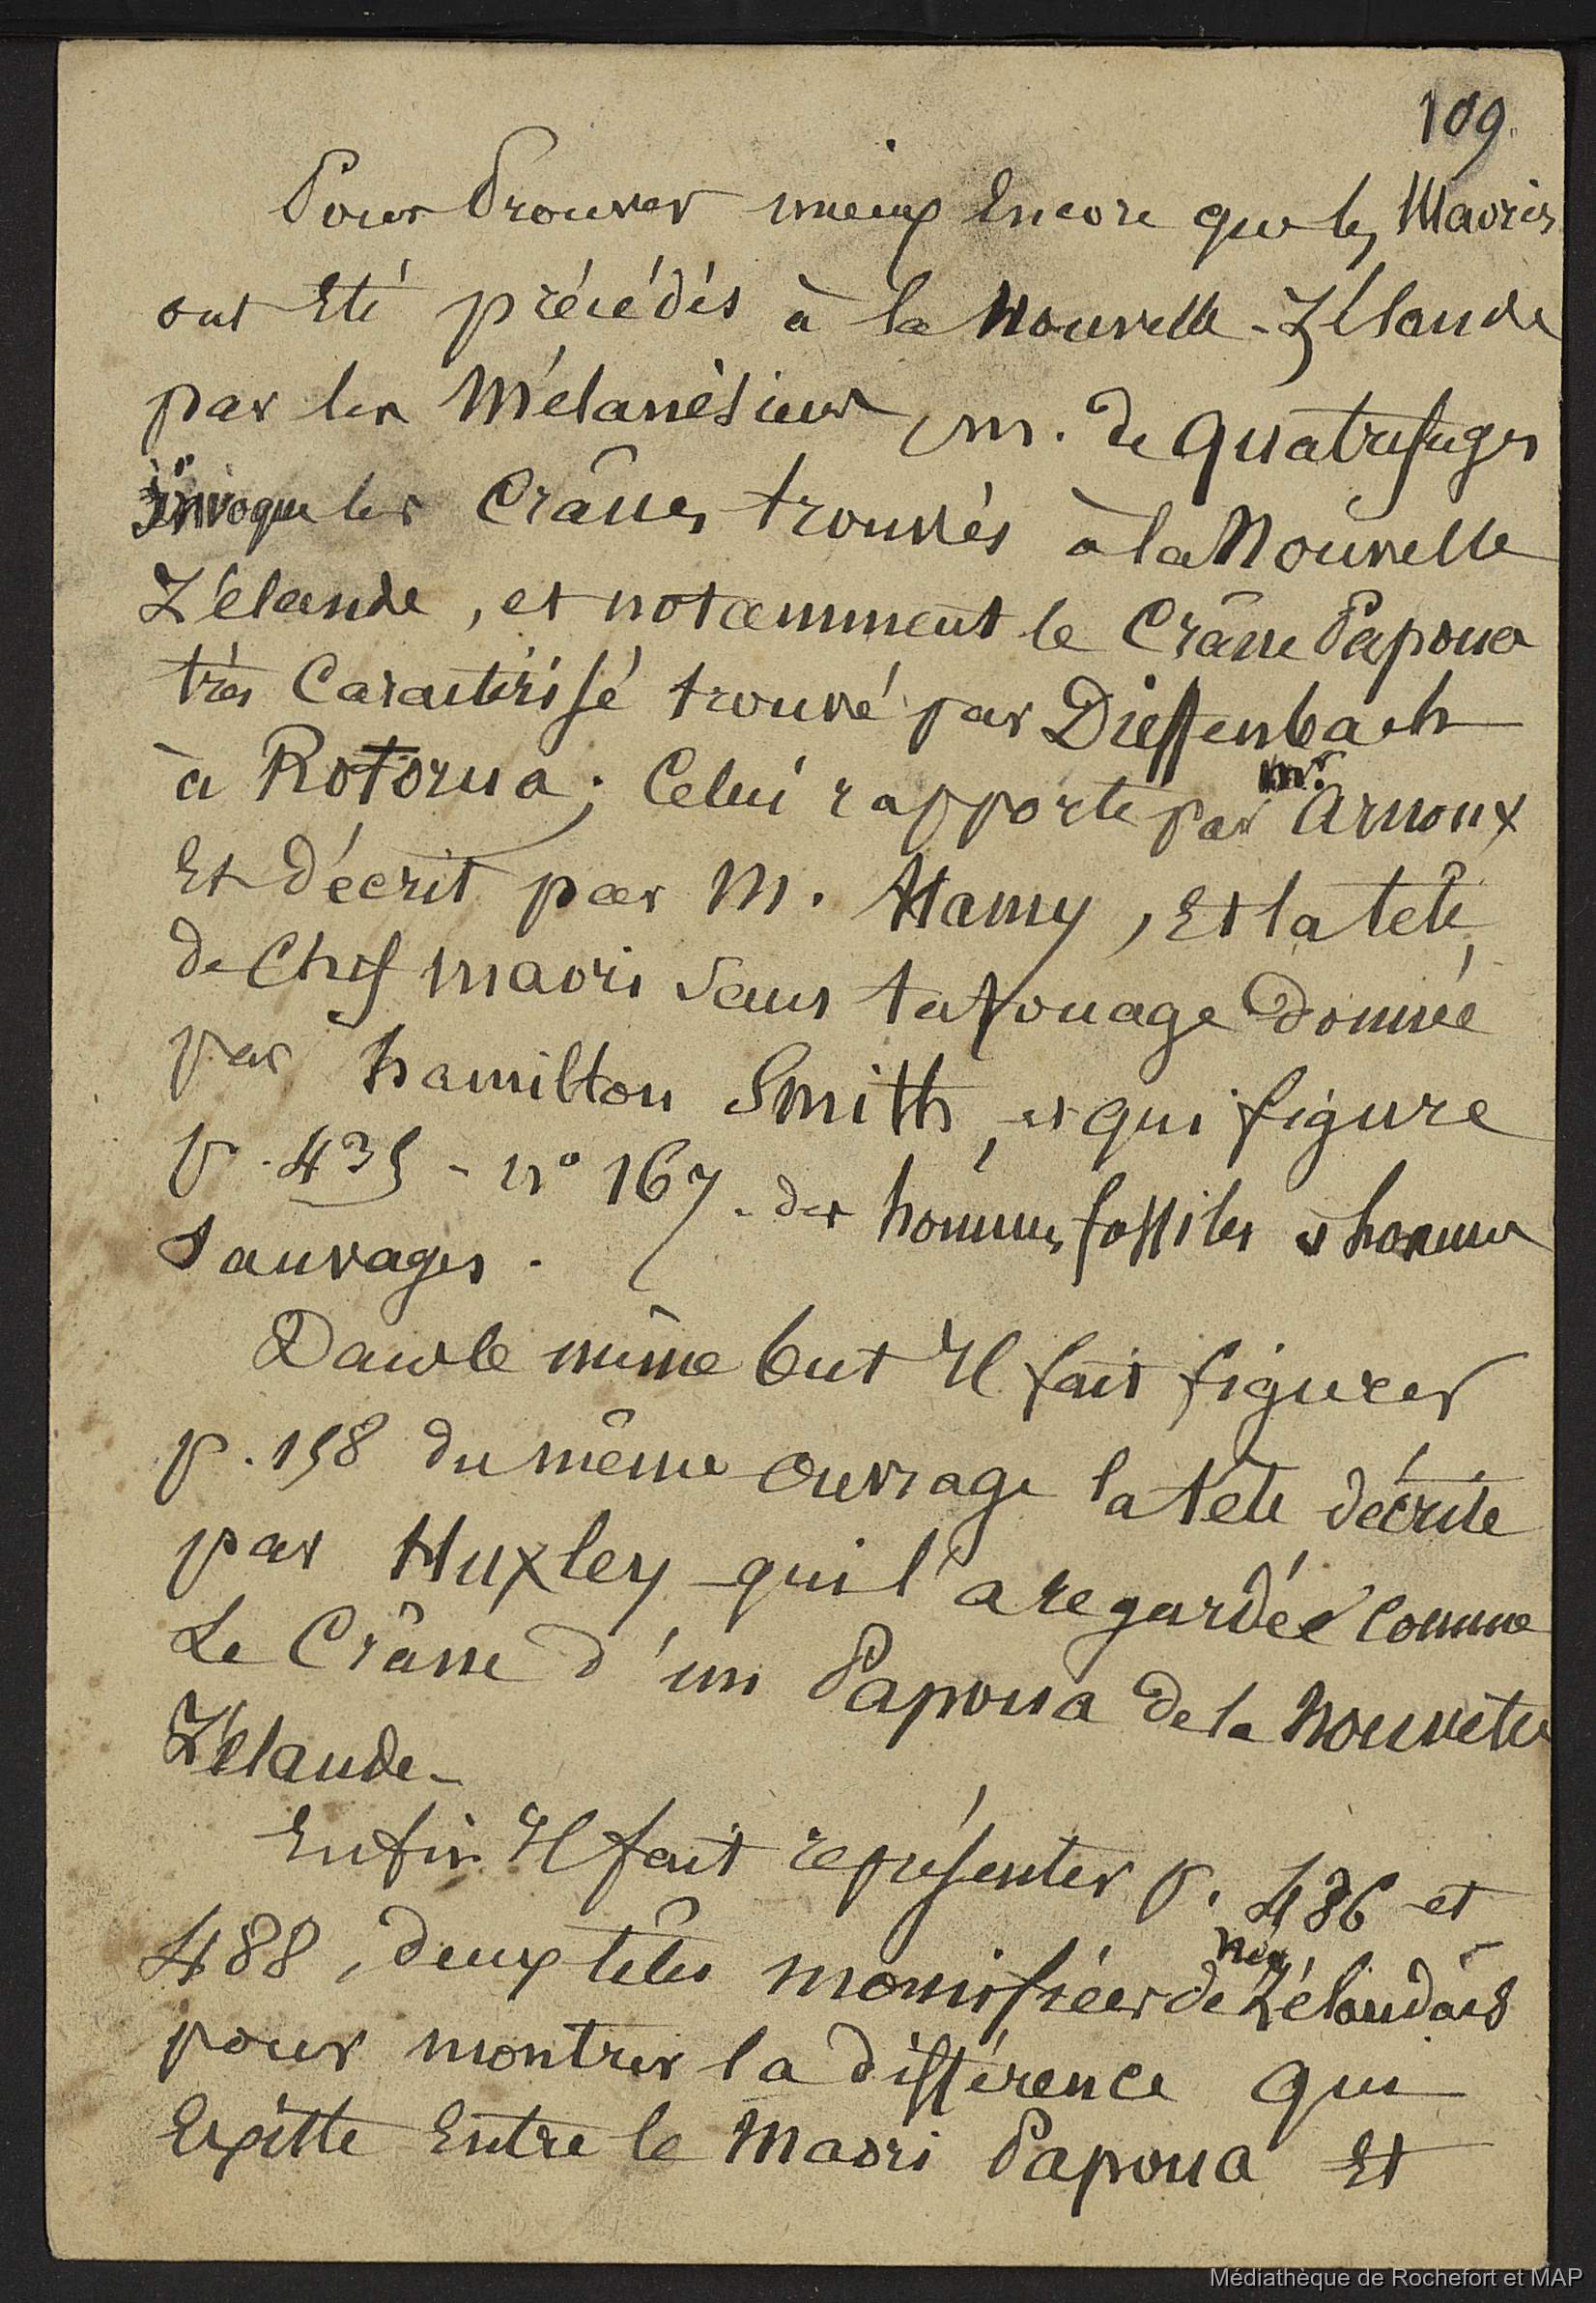 109.
Pour Prouver mieux Encore que les Maoris
ont Eté précédés à la Nouvelle-Zélande
par les Mélanésiens, M. de Quatrefages
invoque les Crânes trouvés à la Nouvelle
Zélande, et notamment le Crâne Papoua
très Caractérisé trouvé par Dieffenbach
à Rotorua; Celui rapporté par Mr. Arnoux
Et décrit par M. Hamy, Et la tête
de Chef maori sans tatouage donnée
par hamilton Smith, et qui figure
p. 435 - n° 167 - des hommes fossiles et hommes
Sauvages.
Dans le même but Il fait figurer
p. 158 du même ouvrage la tête décrite
par Huxley qui l'a regardée Comme
Le Crâne d'un Papoua de la Nouvelle
Zélande-
Enfin Il fait représenter p. 486 et
488, deux têtes momifiées de néo Zélandais
pour montrer la différence qui
Existe Entre le Maori Papoua Et
Médiathèque de Rochefort et MAP